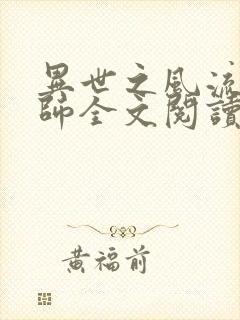 異世之風流
師全文閱讀
黃福前